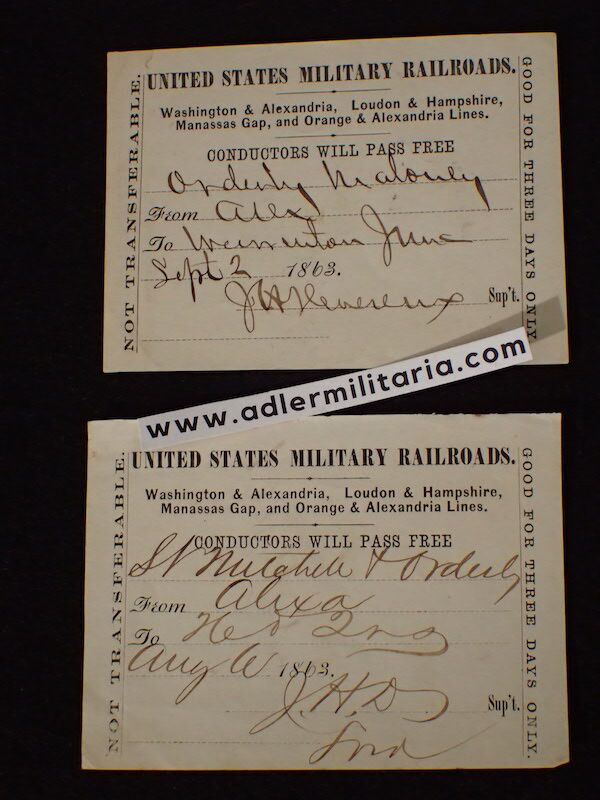 NOT TRANSFERABLE.
UNITED STATES MILITARY RAILROADS.
Washington & Alexandria, Loudon & Hampshire,
Manassas Gap, and Orange & Alexandria Lines.
CONDUCTORS WILL PASS FREE
Orderly Maloney
From Alex
To Warrenton Junc
Sept 2 1863.
J H Devereux Sup't.
GOOD FOR THREE DAYS ONLY
www.adlermilitaria.com
NOT TRANSFERABLE.
UNITED STATES MILITARY RAILROADS.
Washington & Alexandria, Loudon & Hampshire,
Manassas Gap, and Orange & Alexandria Lines.
CONDUCTORS WILL PASS FREE
Lt Mitchell & Orderly
From Alexa
To Hd Qrs
Aug 6 1863.
J. H. D. Sup't.
GOOD FOR THREE DAYS ONLY.